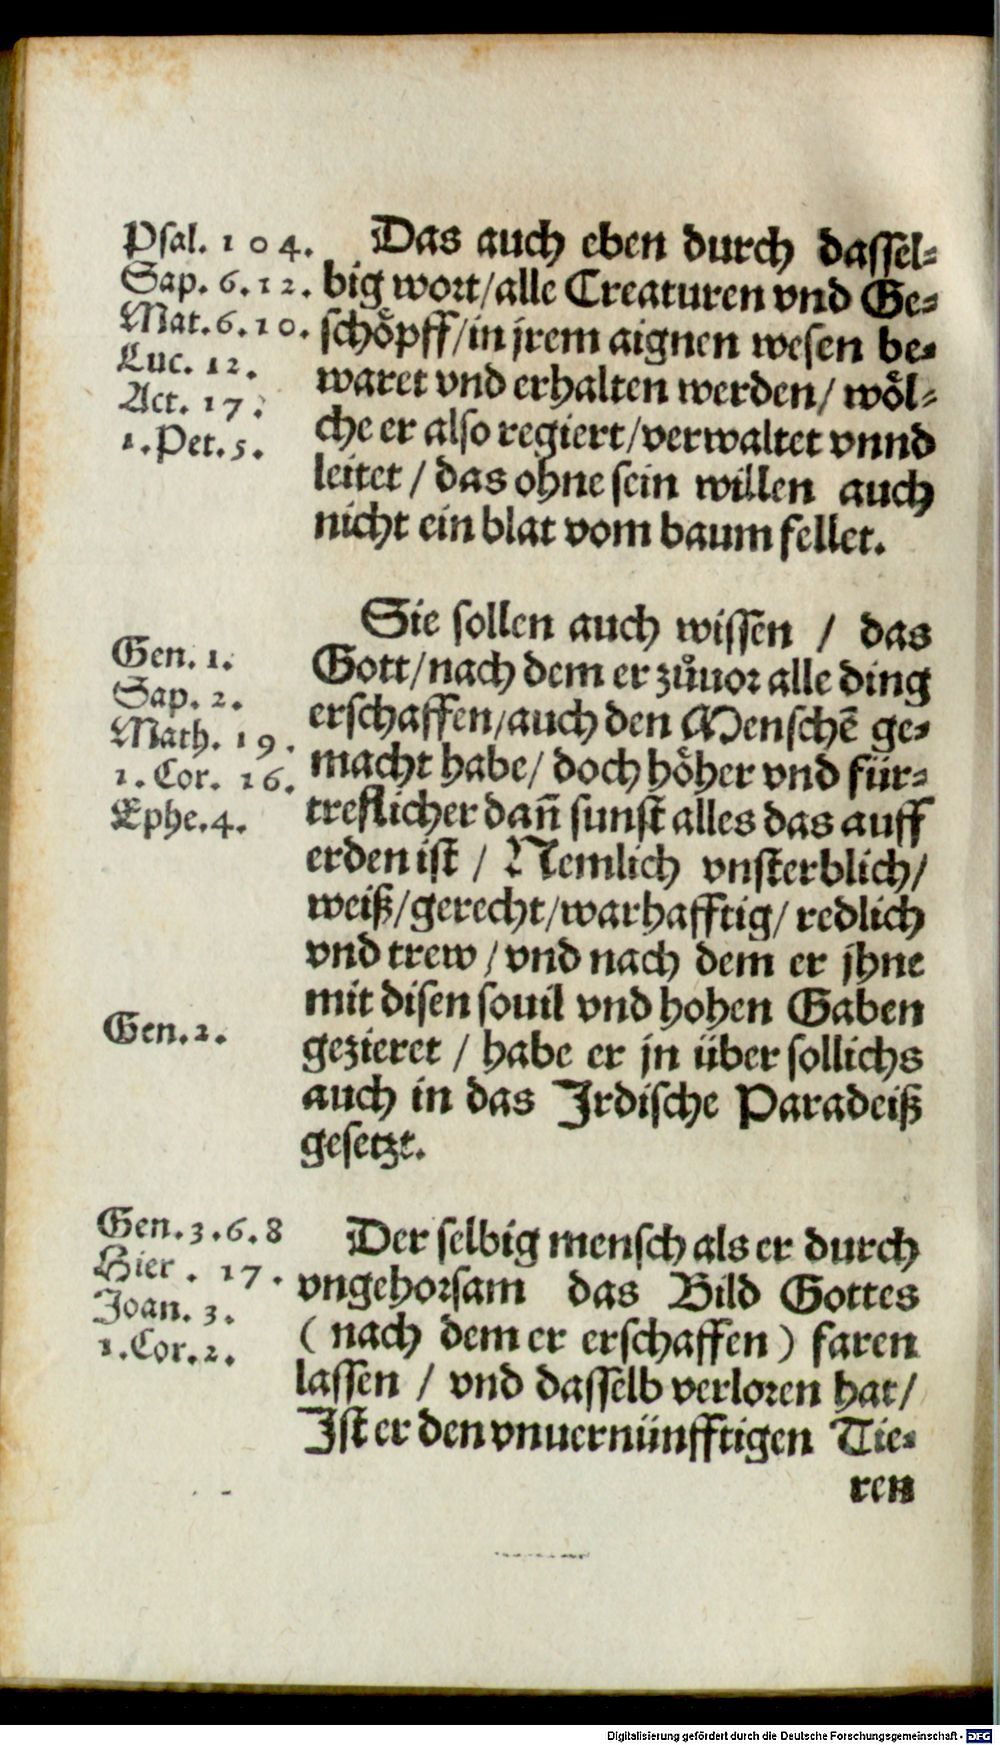 Psal. 104.
Sap. 6. 12.
Mat. 6. 10.
Luc. 12.
Act. 17.
1. Pet. 5.
Das auch eben durch dassel-
big wort/ alle Creaturen vnd Ge-
schoͤpff/ in jrem aignen wesen be-
waret vnd erhalten werden/ woͤl-
che er also regiert/ verwaltet vnnd
leitet / das ohne sein willen auch
nicht ein blat vom baum fellet.
Gen. 1.
Sap. 2.
Math. 19.
1. Cor. 16.
Ephe. 4.
Gen. 2.
Sie sollen auch wissen / das
Gott/ nach dem er zůuor alle ding
erschaffen/ auch den Menschē ge-
macht habe/ doch hoͤher vnd für-
treflicher dañ sunst alles das auff
erden ist / Nemlich vnsterblich/
weiß/ gerecht/ warhafftig/ redlich
vnd trew / vnd nach dem er jhne
mit disen souil vnd hohen Gaben
gezieret / habe er jn über sollichs
auch in das Irdische Paradeiß
gesetzt.
Gen. 3. 6. 8
Hier . 17.
Joan. 3.
1. Cor. 2.
Der selbig mensch als er durch
vngehorsam das Bild Gottes
( nach dem er erschaffen ) faren
lassen / vnd dasselb verloren hat/
Ist er den vnuernünfftigen Tie-
ren
Digitalisierung gefördert durch die Deutsche Forschungsgemeinschaft - DFG